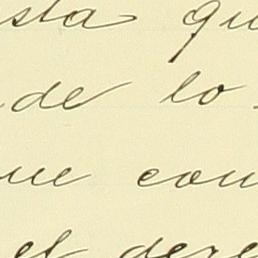 sta qu
de lo
ue con
el dere